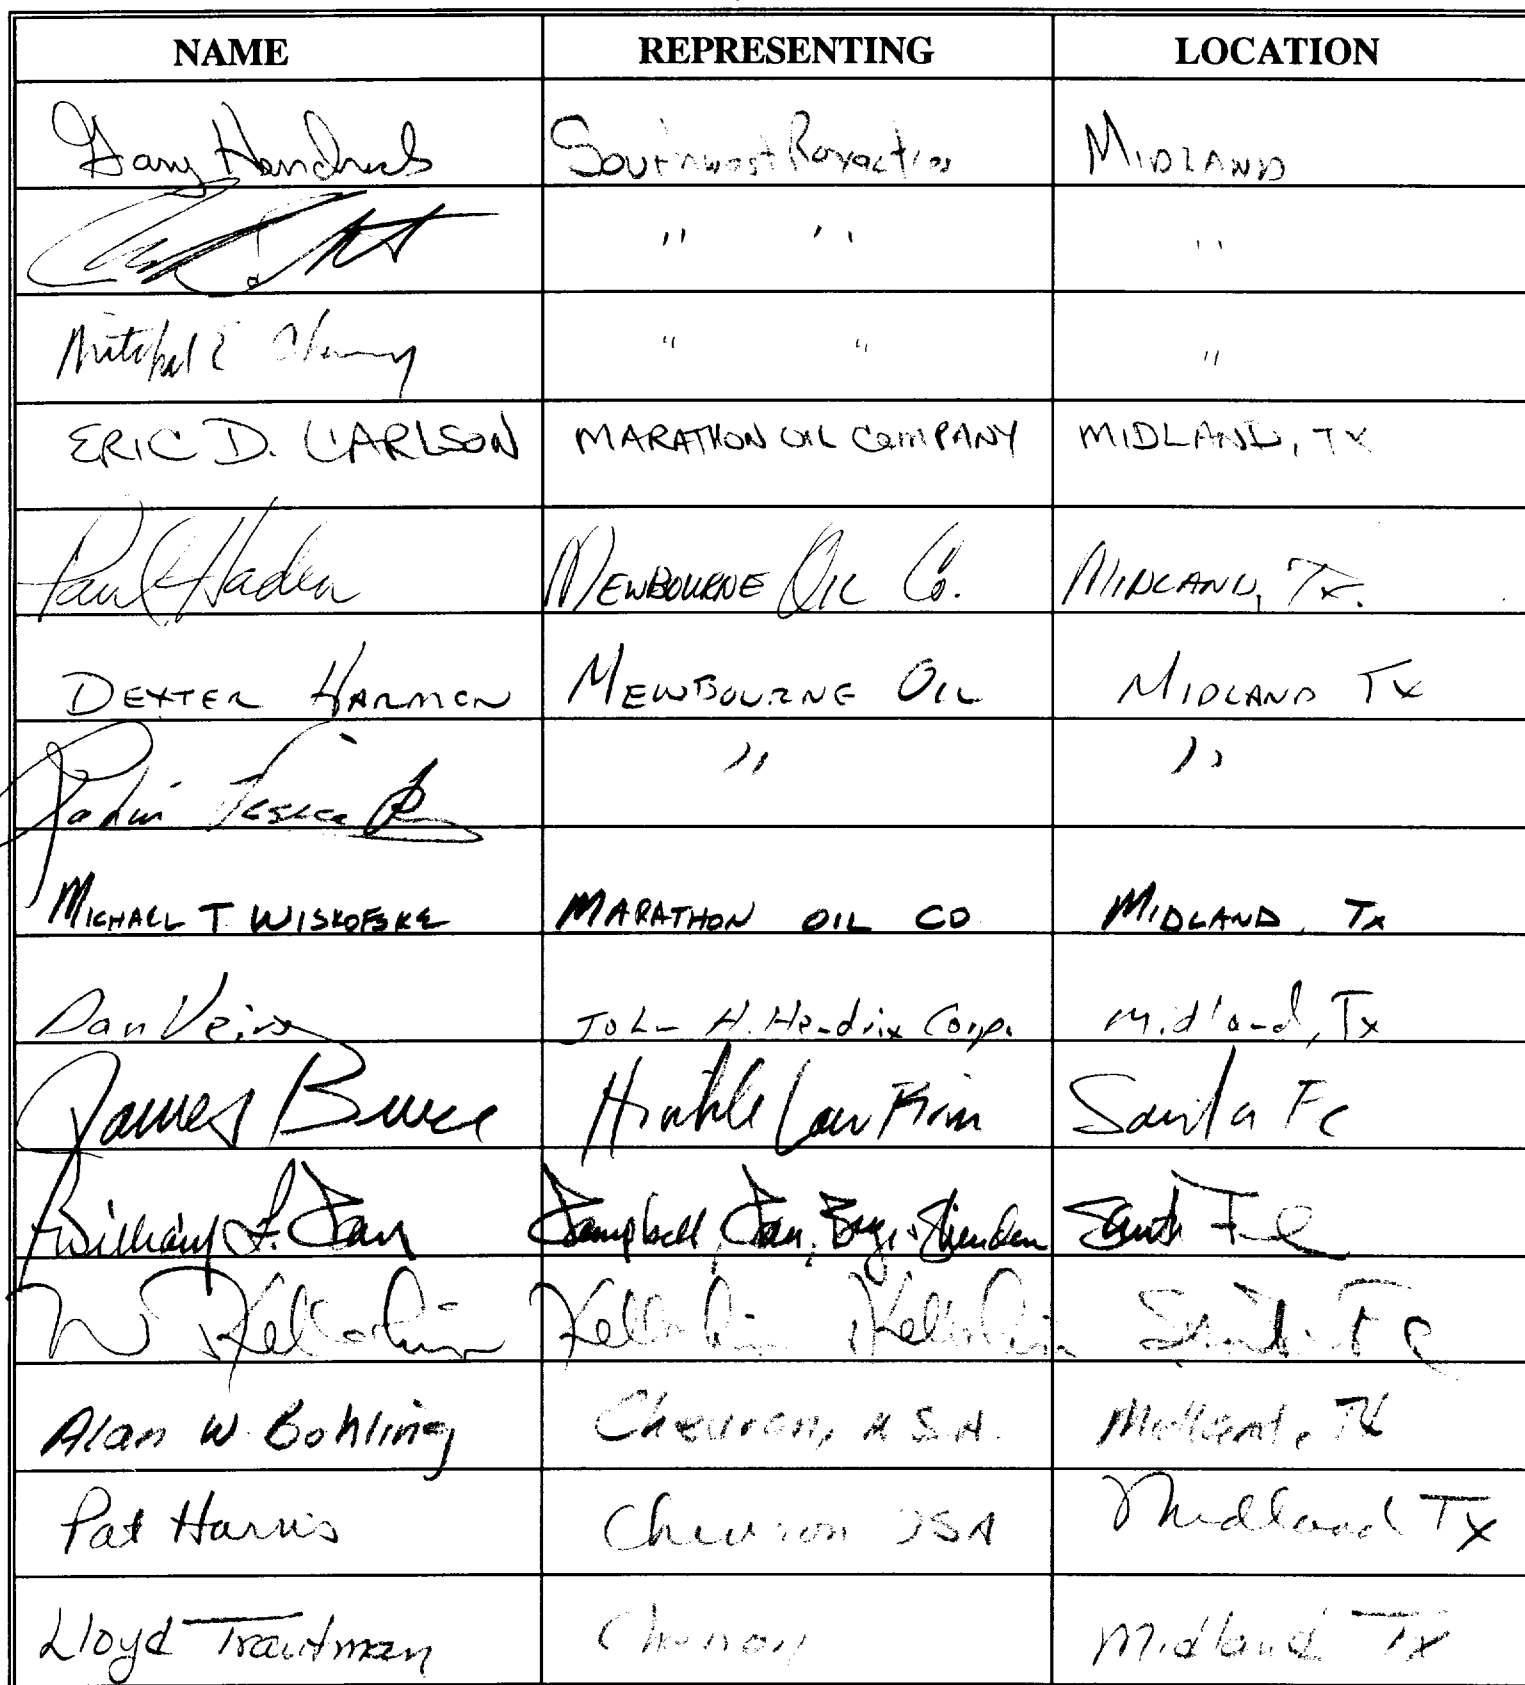 NAME REPRESENTING LOCATION
Gary Hendricks Southwest Royalties MIDLAND
" " "
Mitchel E " " "
ERIC D. CARLSON MARATHON OIL COMPANY MIDLAND, TX
Paul Haden MEWBOURNE OIL CO. MIDLAND, TX.
DEXTER HARMON MEWBOURNE OIL MIDLAND TX
" "
MICHAEL T. WISKOFSKE MARATHON OIL CO MIDLAND, TX
Dan John H. Hendrix Corp. Midland, Tx
James Bruce Hinkle Law Firm Santa Fe
William F. Carr Campbell, Carr, Berge & Sheridan Santa Fe
W Kellahin Kellahin Kellahin Santa Fe
Alan W. Bohling Chevron, USA. Midland, TX
Pat Harris Chevron USA Midland TX
Lloyd Trautman Chevron Midland TX